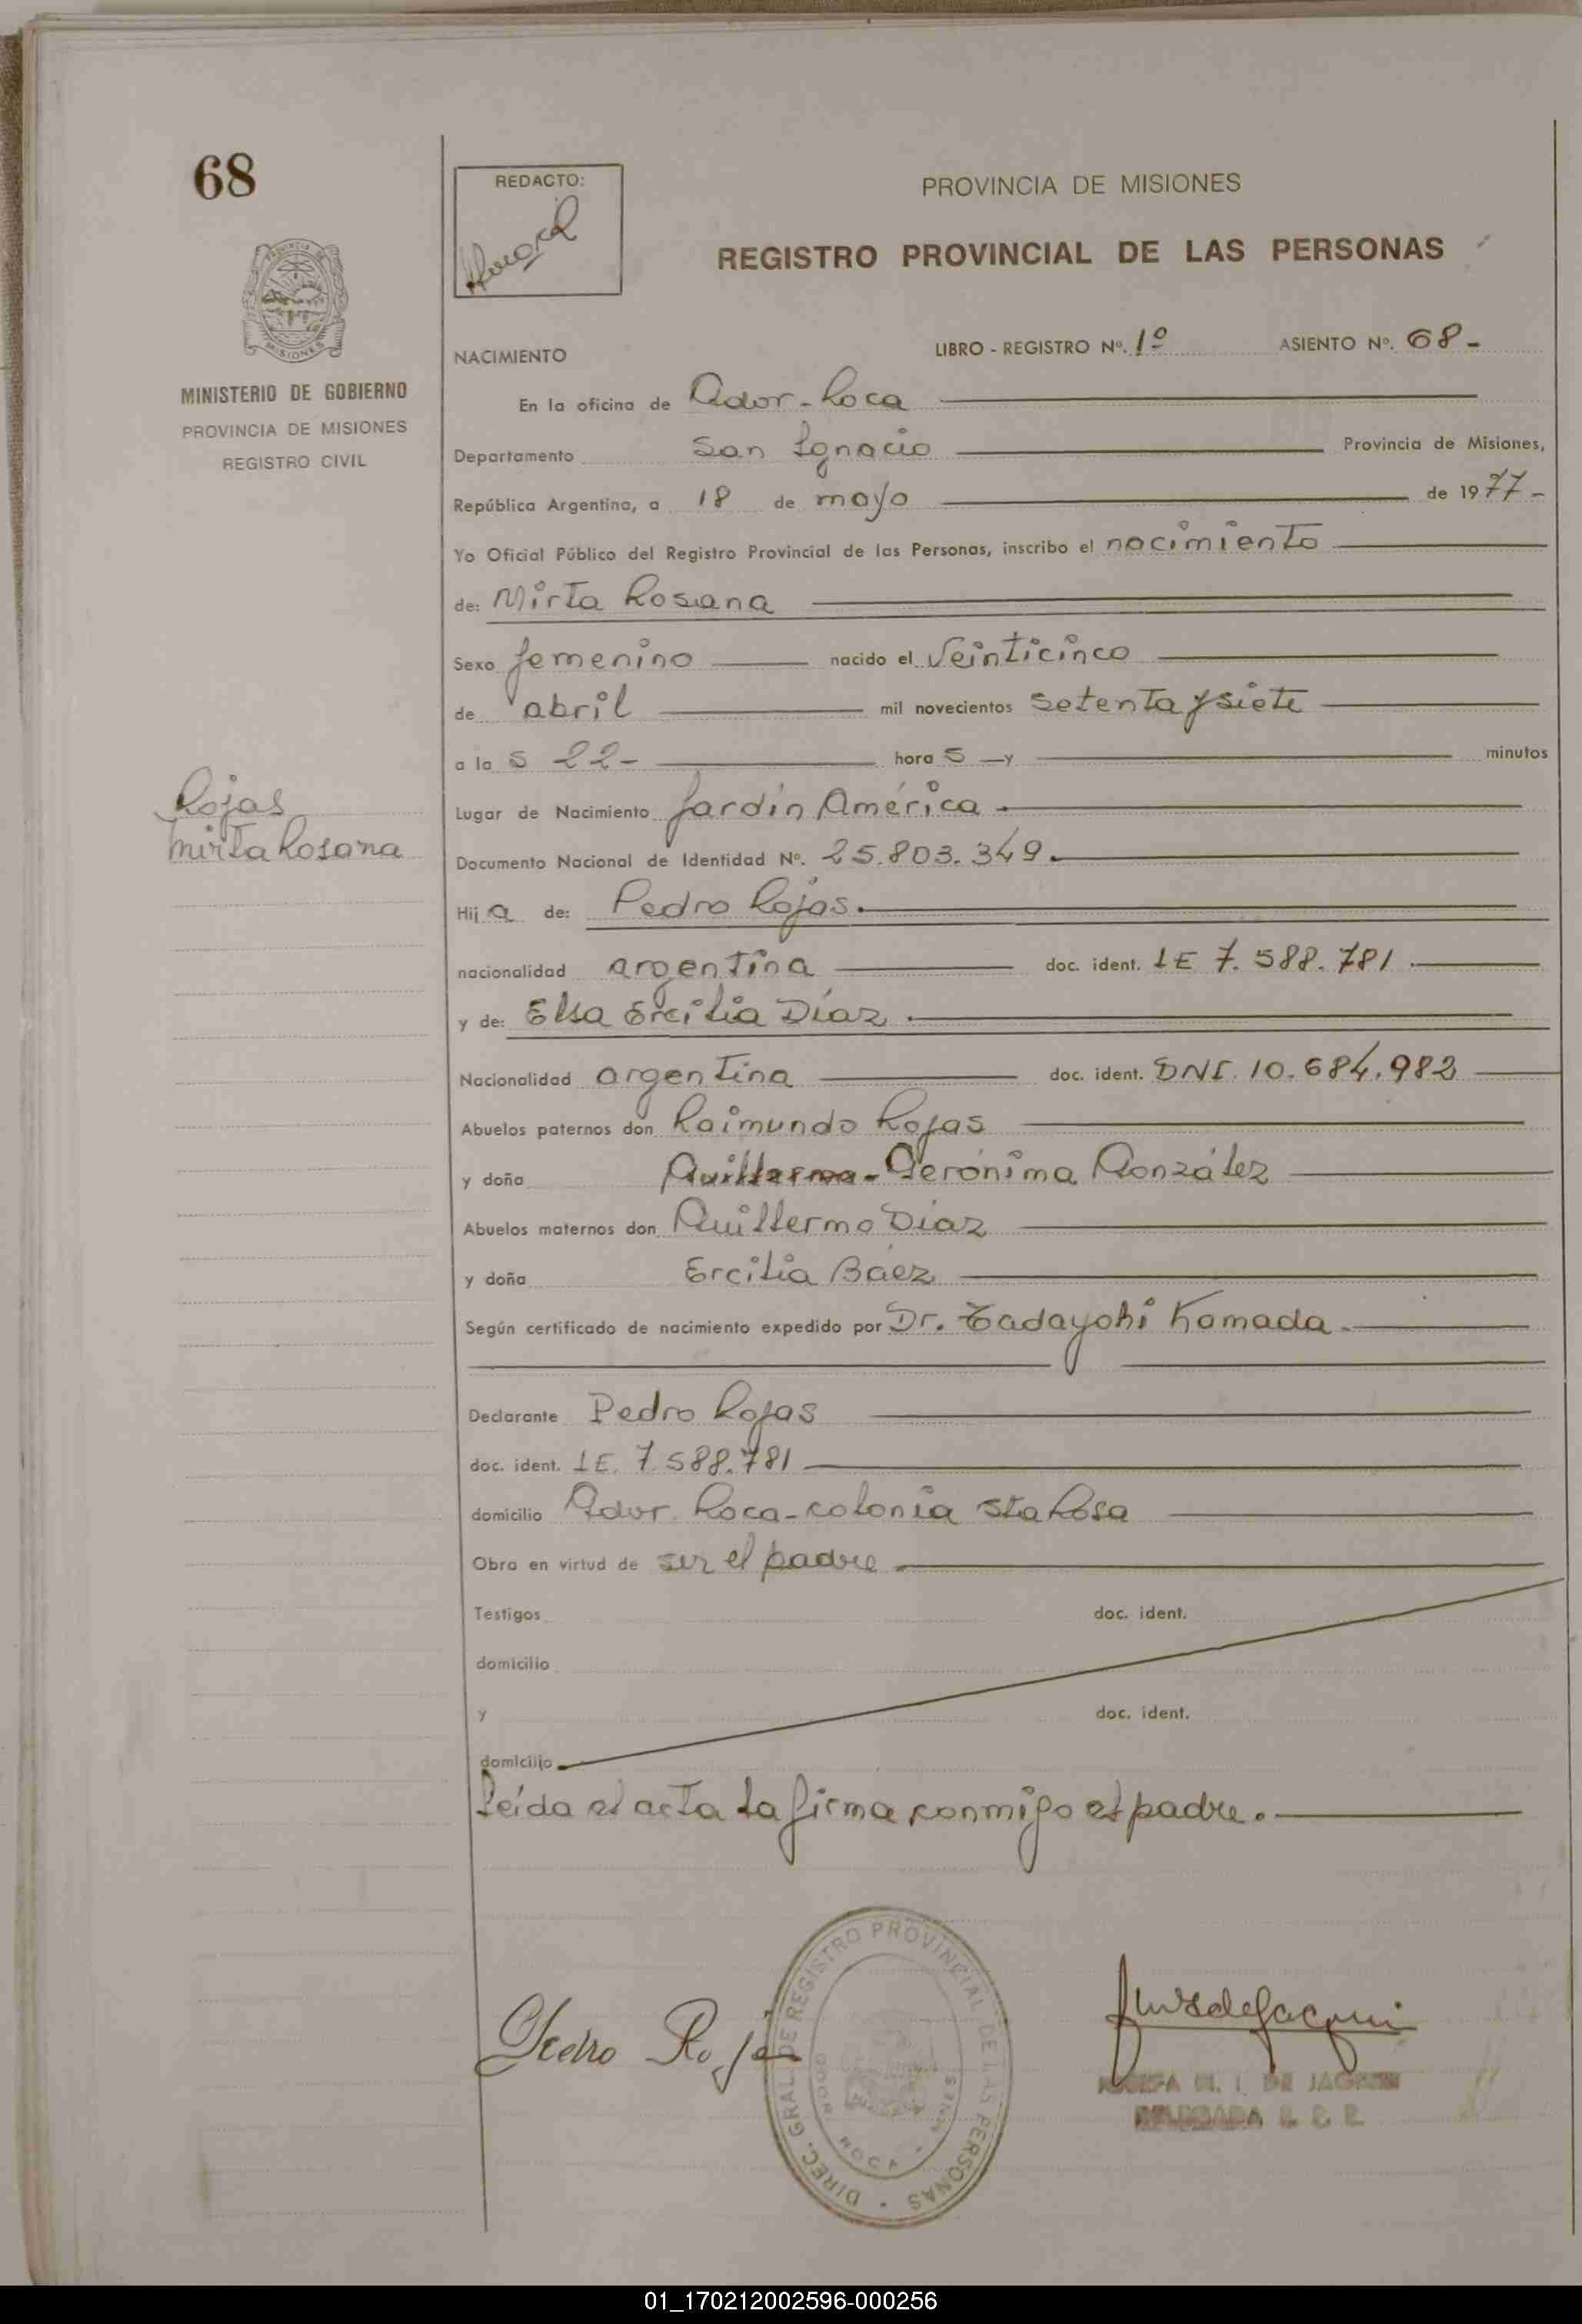 68
REDACTO:
PROVINCIA DE MISIONES
REGISTRO PROVINCIAL DE LAS PERSONAS
PROVINCIA DE
MISIONES
MINISTERIO DE GOBIERNO
PROVINCIA DE MISIONES
REGISTRO CIVIL
NACIMIENTO
LIBRO - REGISTRO Nº. 1º ASIENTO Nº. 68-
En la oficina de Gdor-Roca
Departamento San Ignacio Provincia de Misiones,
República Argentina, a 18 de mayo de 1977-
Yo Oficial Público del Registro Provincial de las Personas, inscribo el nacimiento
de: Mirta Rosana
Sexo femenino nacido el veinticinco
de abril mil novecientos setenta y siete
a la s 22- hora s y minutos
Lugar de Nacimiento Jardín América.
Rojas
Mirta Rosana
Documento Nacional de Identidad Nº. 25.803.349.
Hij a de: Pedro Rojas.
nacionalidad argentina doc. ident. LE 7.588.781.
y de: Elsa Ercilia Díaz.
Nacionalidad argentina doc. ident. DNI. 10.684.982
Abuelos paternos don Raimundo Rojas
y doña Guillermo- Gerónima González
Abuelos maternos don Guillermo Díaz
y doña Ercilia Báez
Según certificado de nacimiento expedido por Dr. Tadayohi Kamada.
Declarante Pedro Rojas
doc. ident. LE. 7.588.781
domicilio Gdor. Roca-colonia Sta Rosa
Obra en virtud de ser el padre
Testigos doc. ident.
domicilio
y doc. ident.
domicilio
Leída el acta la firma conmigo el padre.
Pedro Rojas
DIREC. GRAL. DE REGISTRO PROVINCIAL DE LAS PERSONAS
ROCA
M. I. DE
DELEGADA
01_170212002596-000256